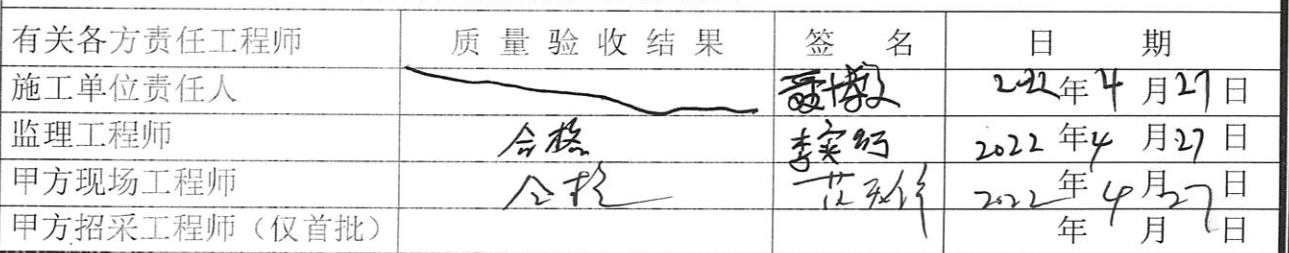 有关各方责任工程师 质量验收结果 签名 日期
施工单位责任人 2022年4月27日
监理工程师 合格 李实 2022年4月27日
甲方现场工程师 合格 范 2022年4月27日
甲方招采工程师（仅首批） 年 月 日